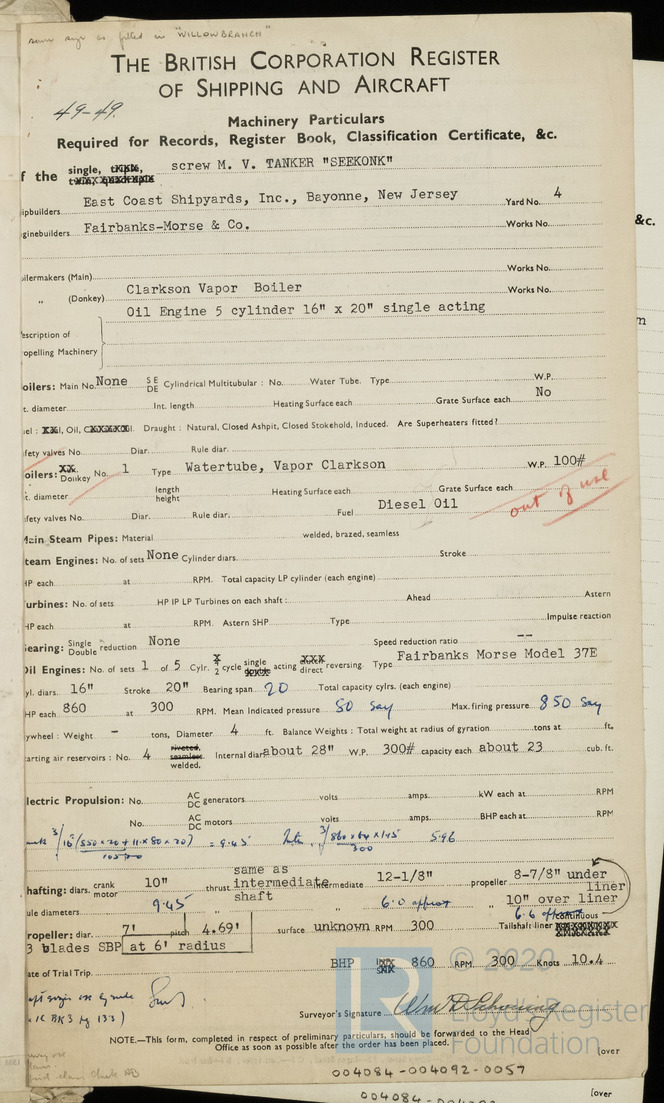 same engs as fitted in "WILLOWBRANCH"
THE BRITISH CORPORATION REGISTER
OF SHIPPING AND AIRCRAFT
49-49.
Machinery Particulars
Required for Records, Register Book, Classification Certificate, &c.
f the single, screw M. V. TANKER "SEEKONK"
ipbuilders East Coast Shipyards, Inc., Bayonne, New Jersey Yard No. 4
ginebuilders Fairbanks-Morse & Co. Works No.
ilermakers (Main) Works No.
" (Donkey) Clarkson Vapor Boiler Works No.
Oil Engine 5 cylinder 16" x 20" single acting
escription of
opelling Machinery
oilers: Main No. None SE DE Cylindrical Multitubular: No. Water Tube. Type W.P.
t. diameter Int. length Heating Surface each Grate Surface each No
el: Oil, Draught: Natural, Closed Ashpit, Closed Stokehold, Induced. Are Superheaters fitted?
fety valves No. Diar. Rule diar.
oilers: Donkey No. 1 Type Watertube, Vapor Clarkson W.P. 100#
t. diameter length height Heating Surface each Grate Surface each
out of use
fety valves No. Diar. Rule diar. Fuel Diesel Oil
Main Steam Pipes: Material welded, brazed, seamless
team Engines: No. of sets None Cylinder diars. Stroke
HP each at RPM. Total capacity LP cylinder (each engine)
urbines: No. of sets HP IP LP Turbines on each shaft: Ahead Astern
HP each at RPM. Astern SHP Type Impulse reaction
earing: Single Double reduction None Speed reduction ratio --
Oil Engines: No. of sets 1 of 5 Cylr. 2 cycle single acting direct reversing. Type Fairbanks Morse Model 37E
yl. diars. 16" Stroke 20" Bearing span 20 Total capacity cylrs. (each engine)
HP each 860 at 300 RPM. Mean Indicated pressure 80 say Max. firing pressure 850 say
ywheel: Weight - tons, Diameter 4 ft. Balance Weights: Total weight at radius of gyration tons at ft.
arting air reservoirs: No. 4 riveted, seamless welded, Internal diar about 28" W.P. 300# capacity each about 23 cub. ft.
lectric Propulsion: No. AC DC generators volts amps. kW each at RPM
No. AC DC motors volts amps. BHP each at RPM
= 9.45 300 5.96
hafting: diars. crank motor 10" thrust same as intermediate shaft intermediate 12-1/8" propeller 8-7/8" under liner
ule diameters 9.45 " 6.0 approx " 10" over liner
6.6 approx
ropeller: diar. 7' pitch 4.69' surface unknown RPM 300 Tailshaft liner continuous
3 blades SBP at 6' radius
ate of Trial Trip BHP 860 RPM. 300 Knots 10.4
Surveyor's Signature
NOTE.—This form, completed in respect of preliminary particulars, should be forwarded to the Head
Office as soon as possible after the order has been placed.
[over
© 2020
Lloyd's Register
Foundation
004084-004092-0057
[over
&c.